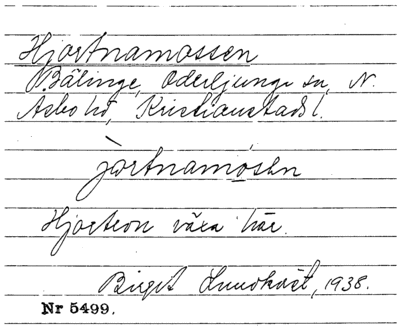 Hjortnamossen
Bälinge, Oderljunga sn, N.
Åsbo hd, Kristianstads l.
jortnamosen
Hjortron växa här.
Birgit Lundkvist, 1938.
Nr 5499.